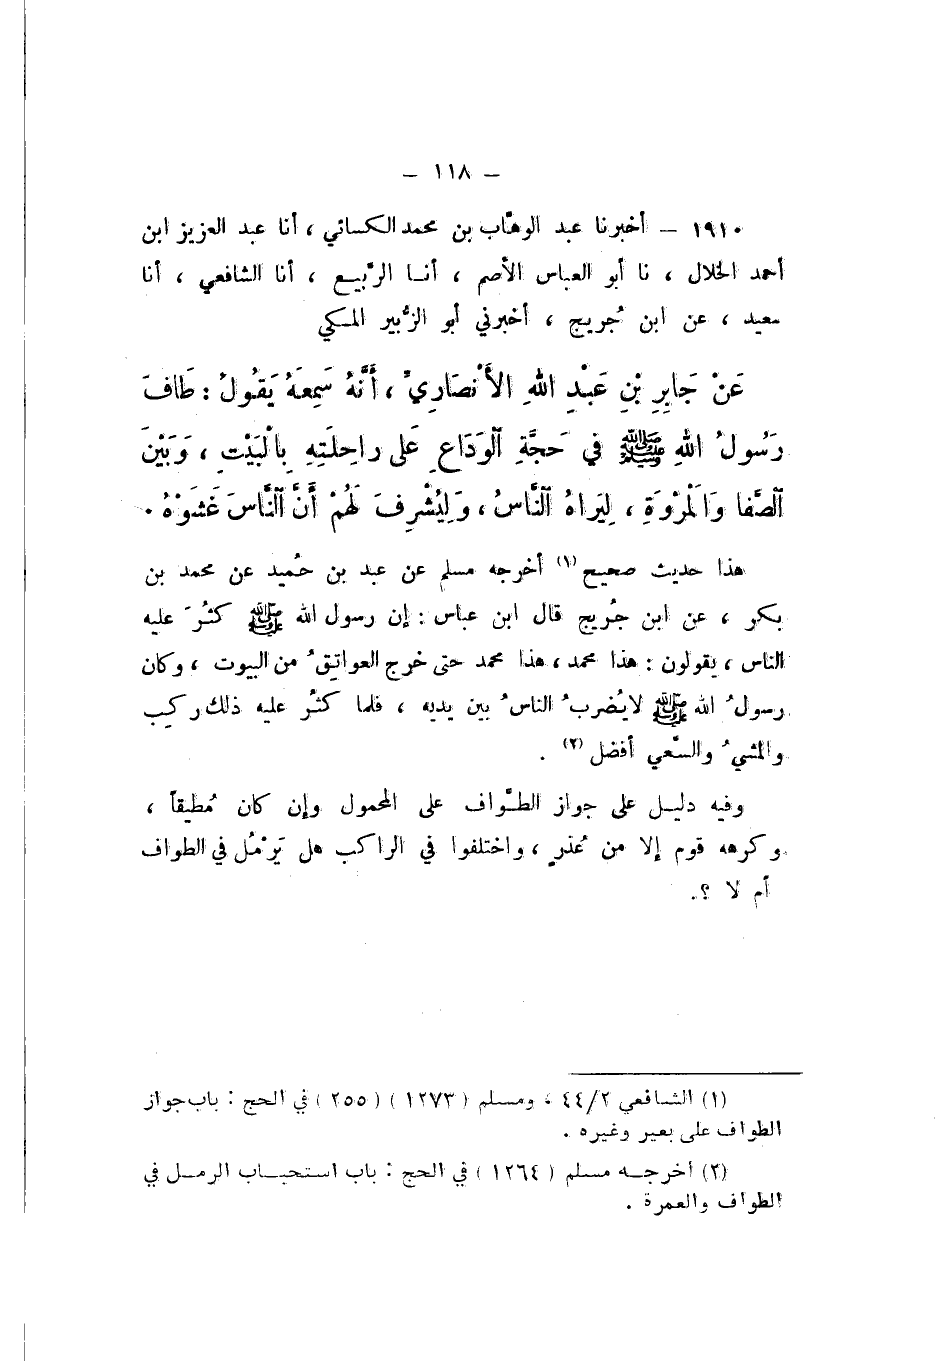 – ١١٨ –
١٩١٠ – أخبرنا عبد الوهّاب بن محمد الكسائي ، أنا عبد العزيز ابن
أحمد الخلال ، نا أبو العباس الأصم ، أنا الرَّبيع ، أنا الشافعي ، أنا
سعيد ، عن ابن جُريج ، أخبرني أبو الزُّبير المكي
عَنْ جَابِرِ بْنِ عَبْدِ اللهِ الأَنْصَارِيِّ ، أَنَّهُ سَمِعَهُ يَقُولُ : طَافَ
رَسُولُ اللهِ ﷺ في حَجَّةِ الْوَدَاعِ عَلى راحِلَتِهِ بِالْبَيْتِ ، وَبَيْنَ
الصَّفا وَالْمَرْوَةِ ، لِيَراهُ النَّاسُ ، وَلِيُشْرِفَ لَهُمْ أَنَّ النَّاسَ غَشَوْهُ .
هذا حديث صحيح (١) أخرجه مسلم عن عبد بن حُميد عن محمد بن
بكر ، عن ابن جُريج قال ابن عباس : إن رسول الله ﷺ كثُرَ عليه
الناس ، يقولون : هذا محمد ، هذا محمد حتى خرج العواتِقُ من البيوت ، وكان
رسولُ الله ﷺ لا يُضربُ الناسُ بين يديه ، فلما كثُر عليه ذلك ركِب
والمشيُ والسَّعي أفضل (٢) .
وفيه دليل على جواز الطَّواف على المحمول وإن كان مُطيقاً ،
وكرهه قوم إلا من عُذرٍ ، واختلفوا في الراكب هل يَرْمُل في الطواف
أم لا ؟.
(١) الشافعي ٤٤/٢ ، ومسلم ( ١٢٧٣ ) ( ٢٥٥ ) في الحج : باب جواز
الطواف على بعير وغيره .
(٢) أخرجه مسلم ( ١٢٦٤ ) في الحج : باب استحباب الرمل في
الطواف والعمرة .